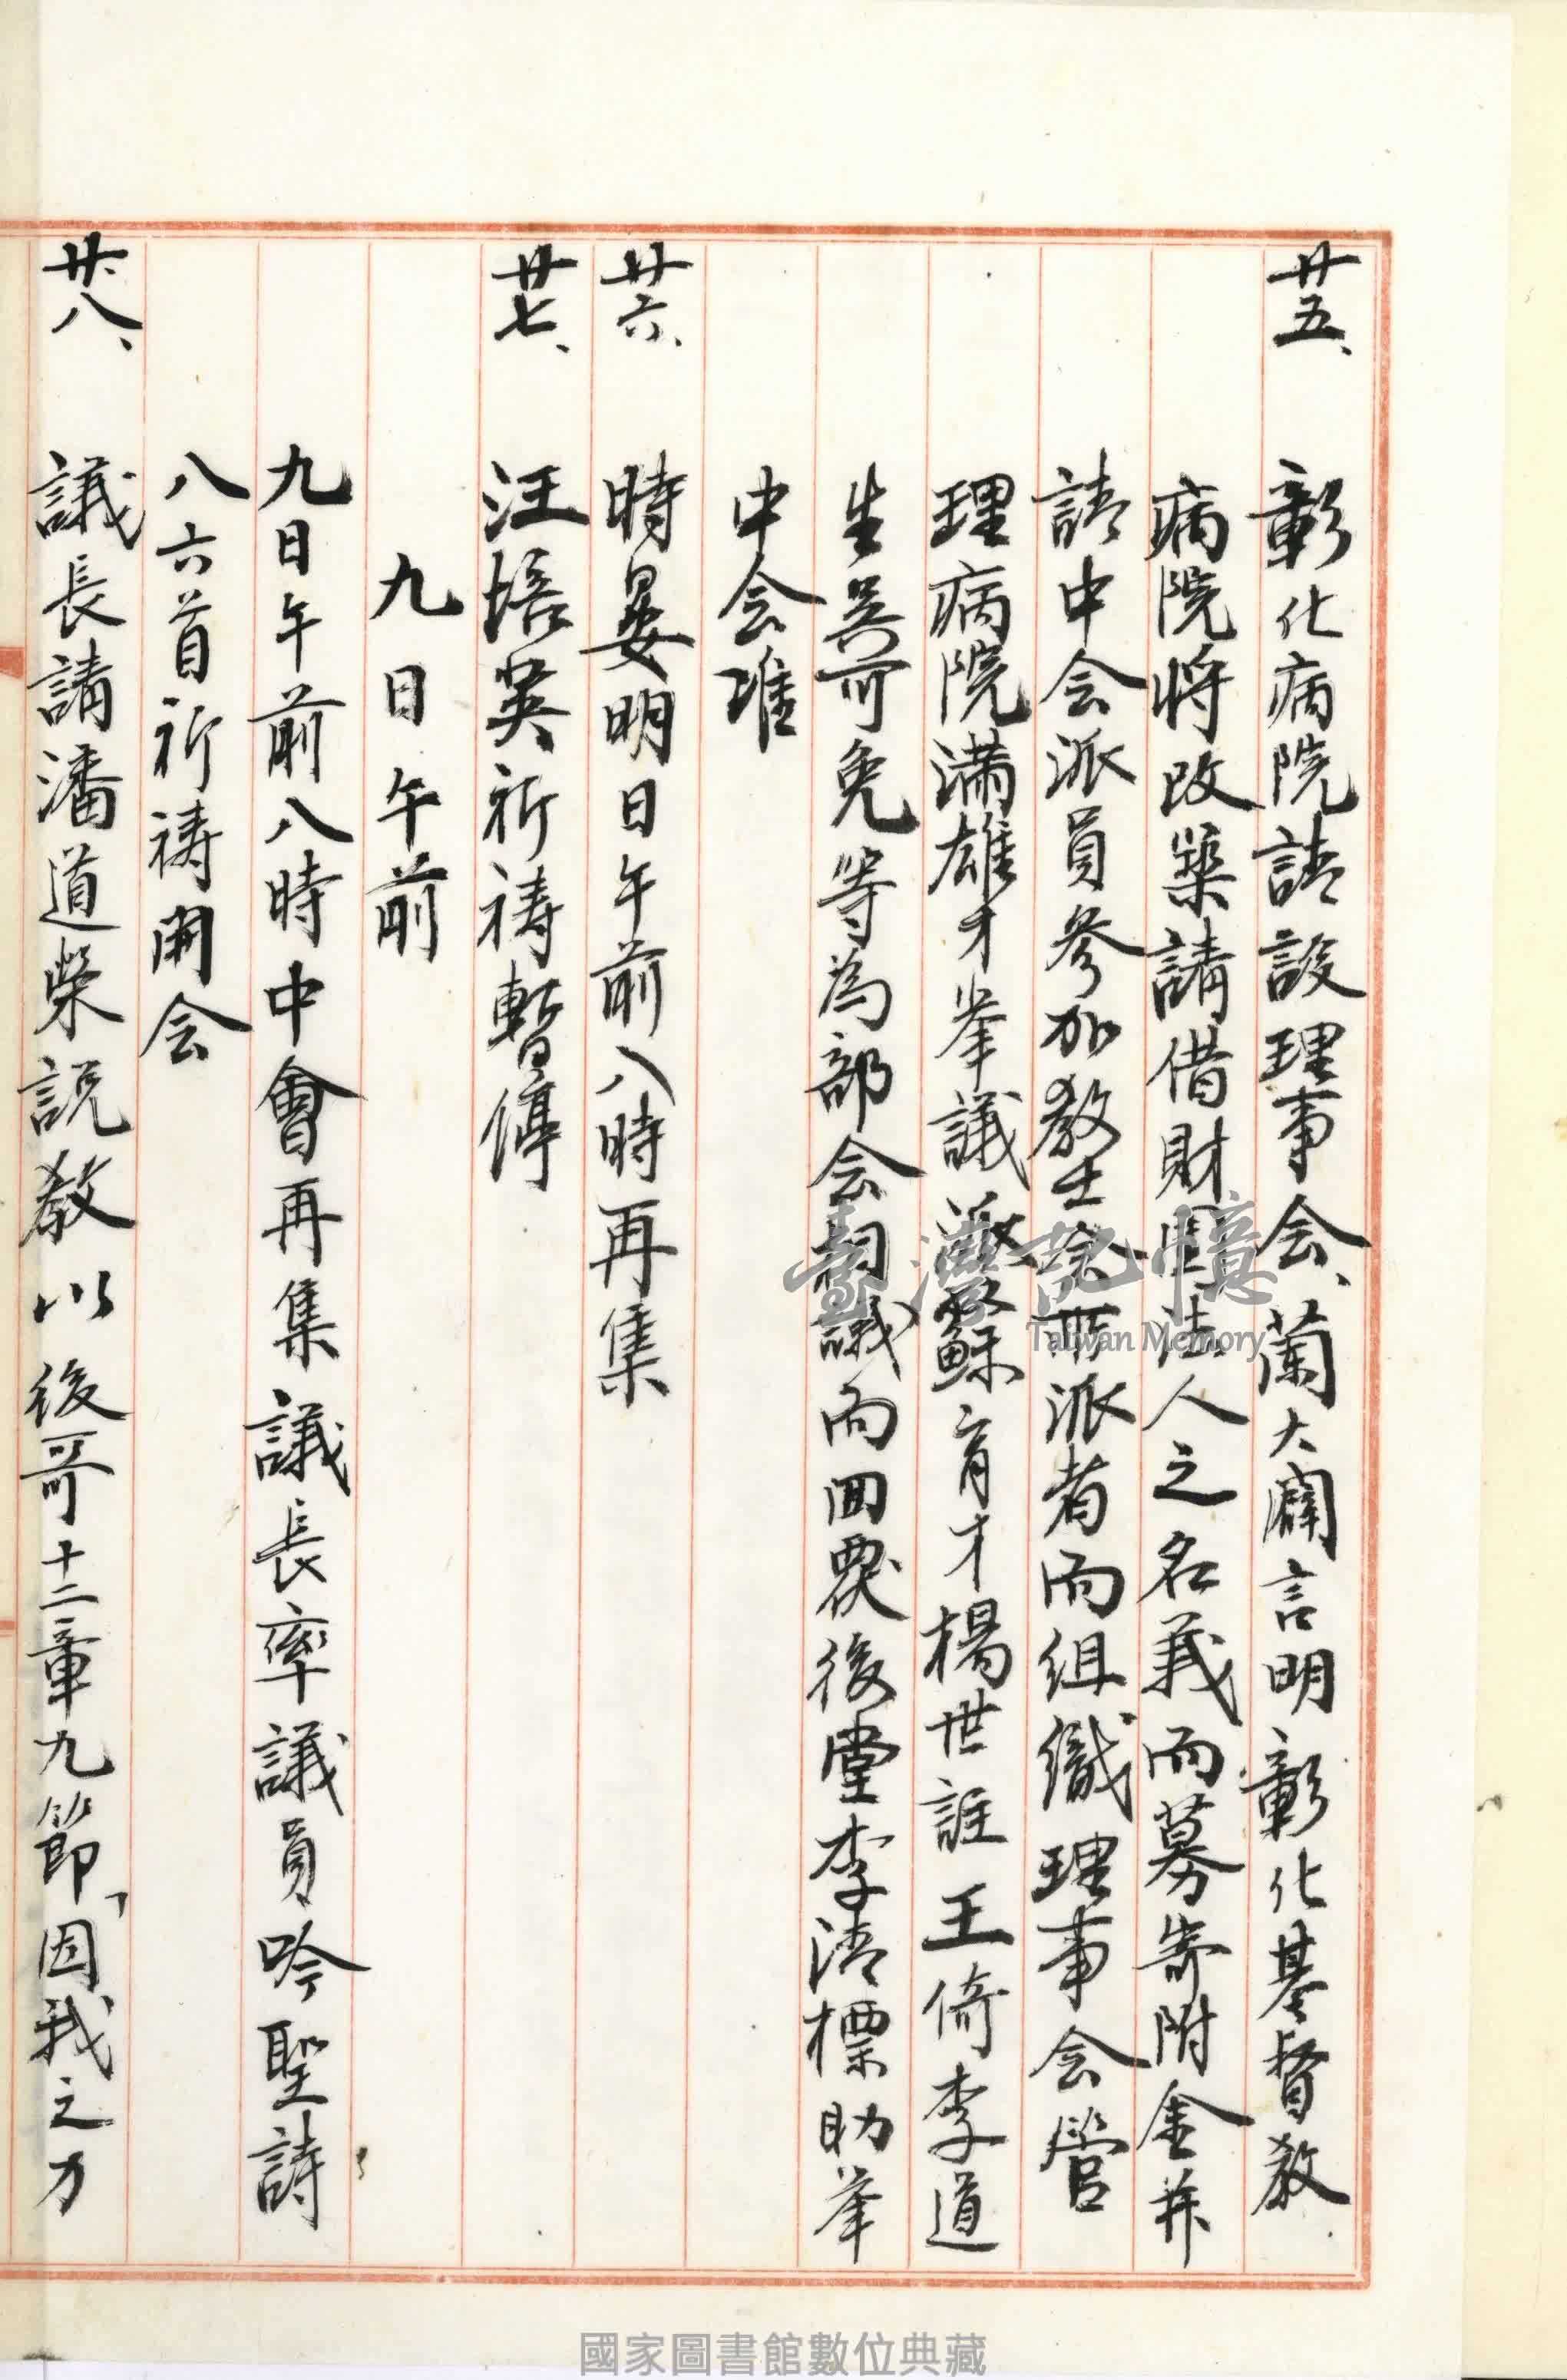 廿五、彰化病院請設理事会、蘭大闢言明彰化基督教
病院将改築請借財團法人之名義而募寄附金并
請中会派員參加教士会所派者而組織理事会管
理病院滿雄才举議派蘇育才楊世註王倚李道
生吳可免等為部会相議而回覆後堂李清標助举
中会准
廿六、時晏明日午前八時再集
廿七、汪培英祈祷暫停
九日午前
九日午前八時中會再集議長率議員吟聖詩
八六首祈祷開会
廿八、議長請潘道榮説教以後哥十二章九節「因我之力
臺灣記憶
Taiwan Memory
國家圖書館數位典藏